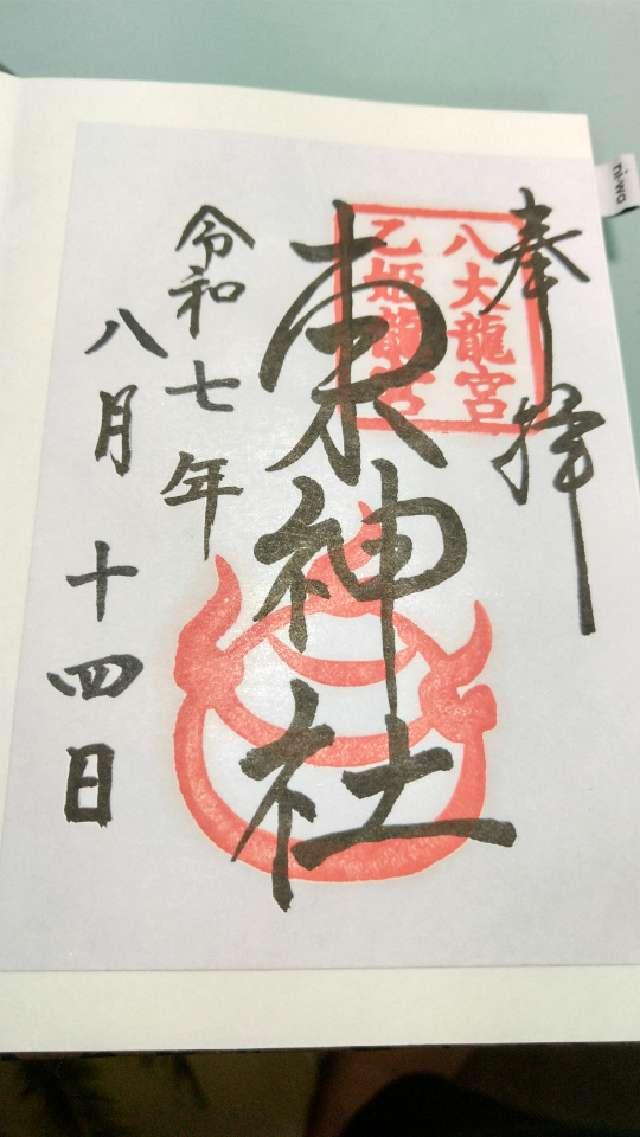 奉拝
八大龍宮
乙姫龍宮
東神社
令和七年
八月十四日